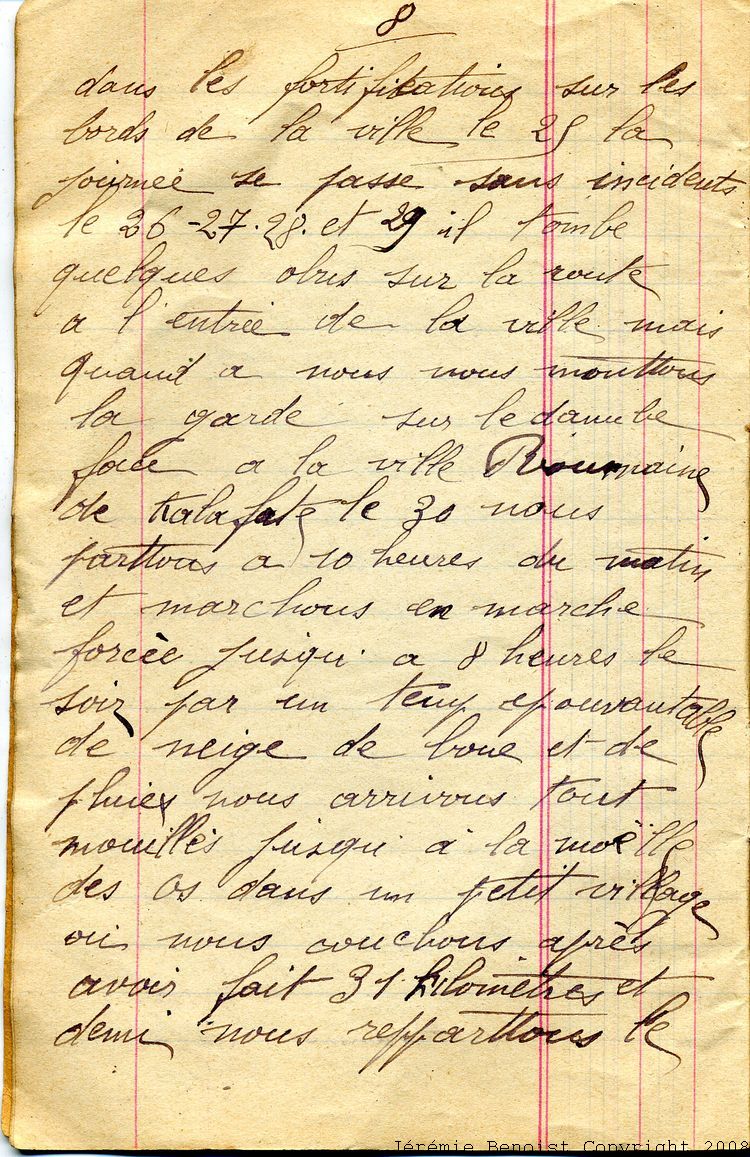 8
dans les fortifications sur les
bords de la ville le 25 la
journée se passe sans incidents
le 26-27.28. et 29 il tombe
quelques obus sur la route
a l'entrée de la ville mais
quand a nous nous monttons
la garde sur le danube
face a la ville Roumaine
de Kalafate le 30 nous
parttons a 10 heures du matin
et marchons en marche
forcée jusqu'a 8 heures le
soir par un temp epouvantable
de neige de boue et de
pluies nous arrivons tout
mouillés jusqu'a la moëlle
des os dans un petit village
ou nous couchons après
avoir fait 31 kilomètres et
demi nous repparttons le
Jérémie Benoist Copyright 2008